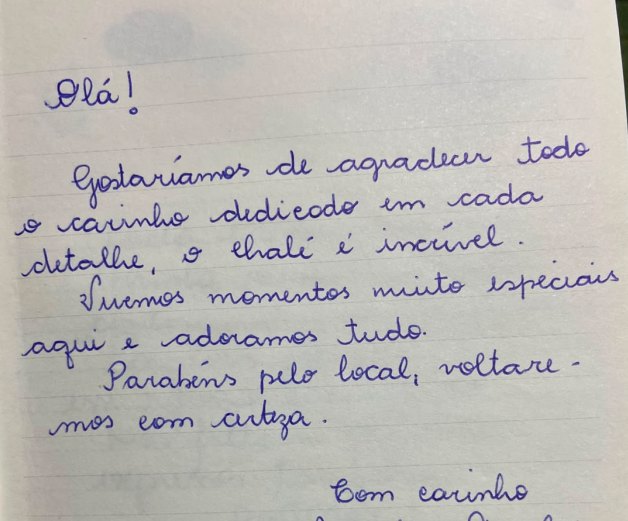 Olá!
Gostaríamos de agradecer todo
o carinho dedicado em cada
detalhe, o chalé é incrível.
Vivemos momentos muito especiais
aqui e adoramos tudo.
Parabéns pelo local, voltare-
mos com certeza.
Com carinho